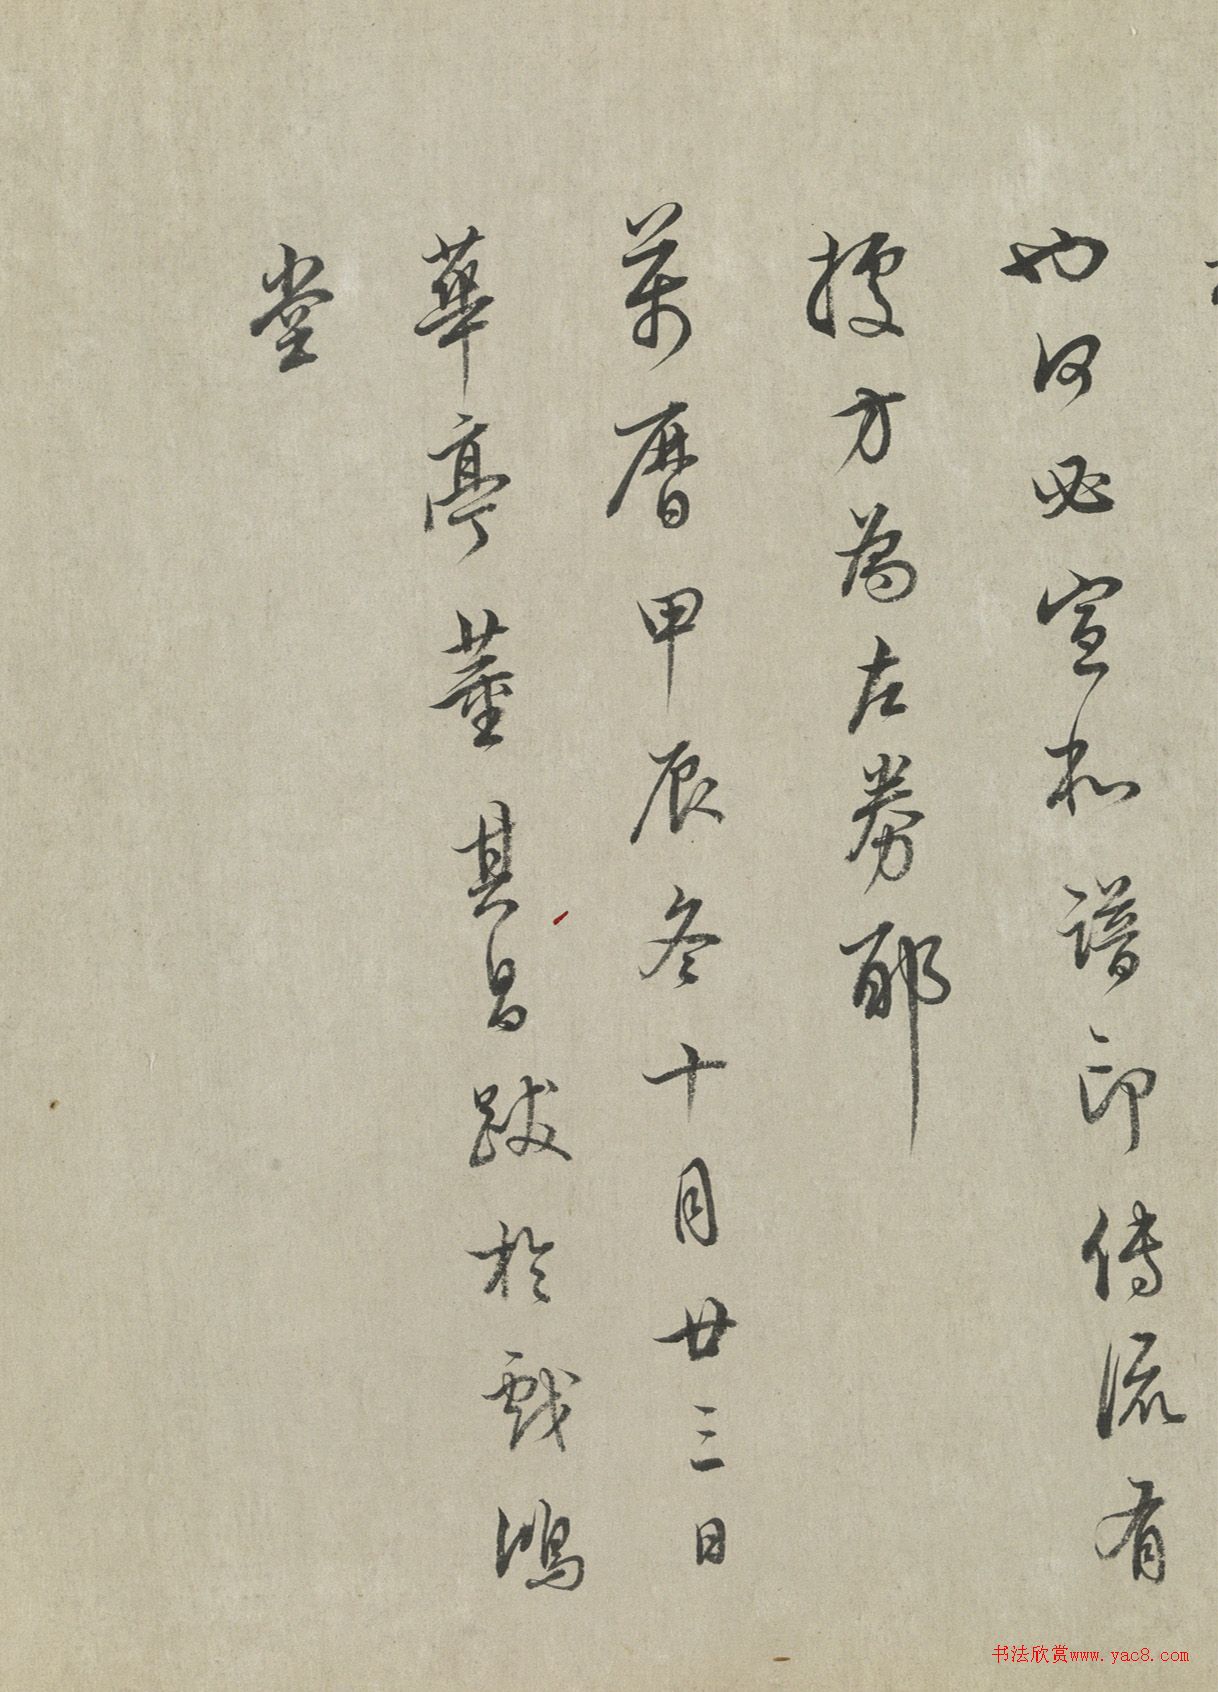 也何必宣和譜印傳流有
據方為左券耶
萬曆甲辰冬十月廿三日
華亭董其昌跋於戲鴻
堂
书法欣赏www.yac8.com